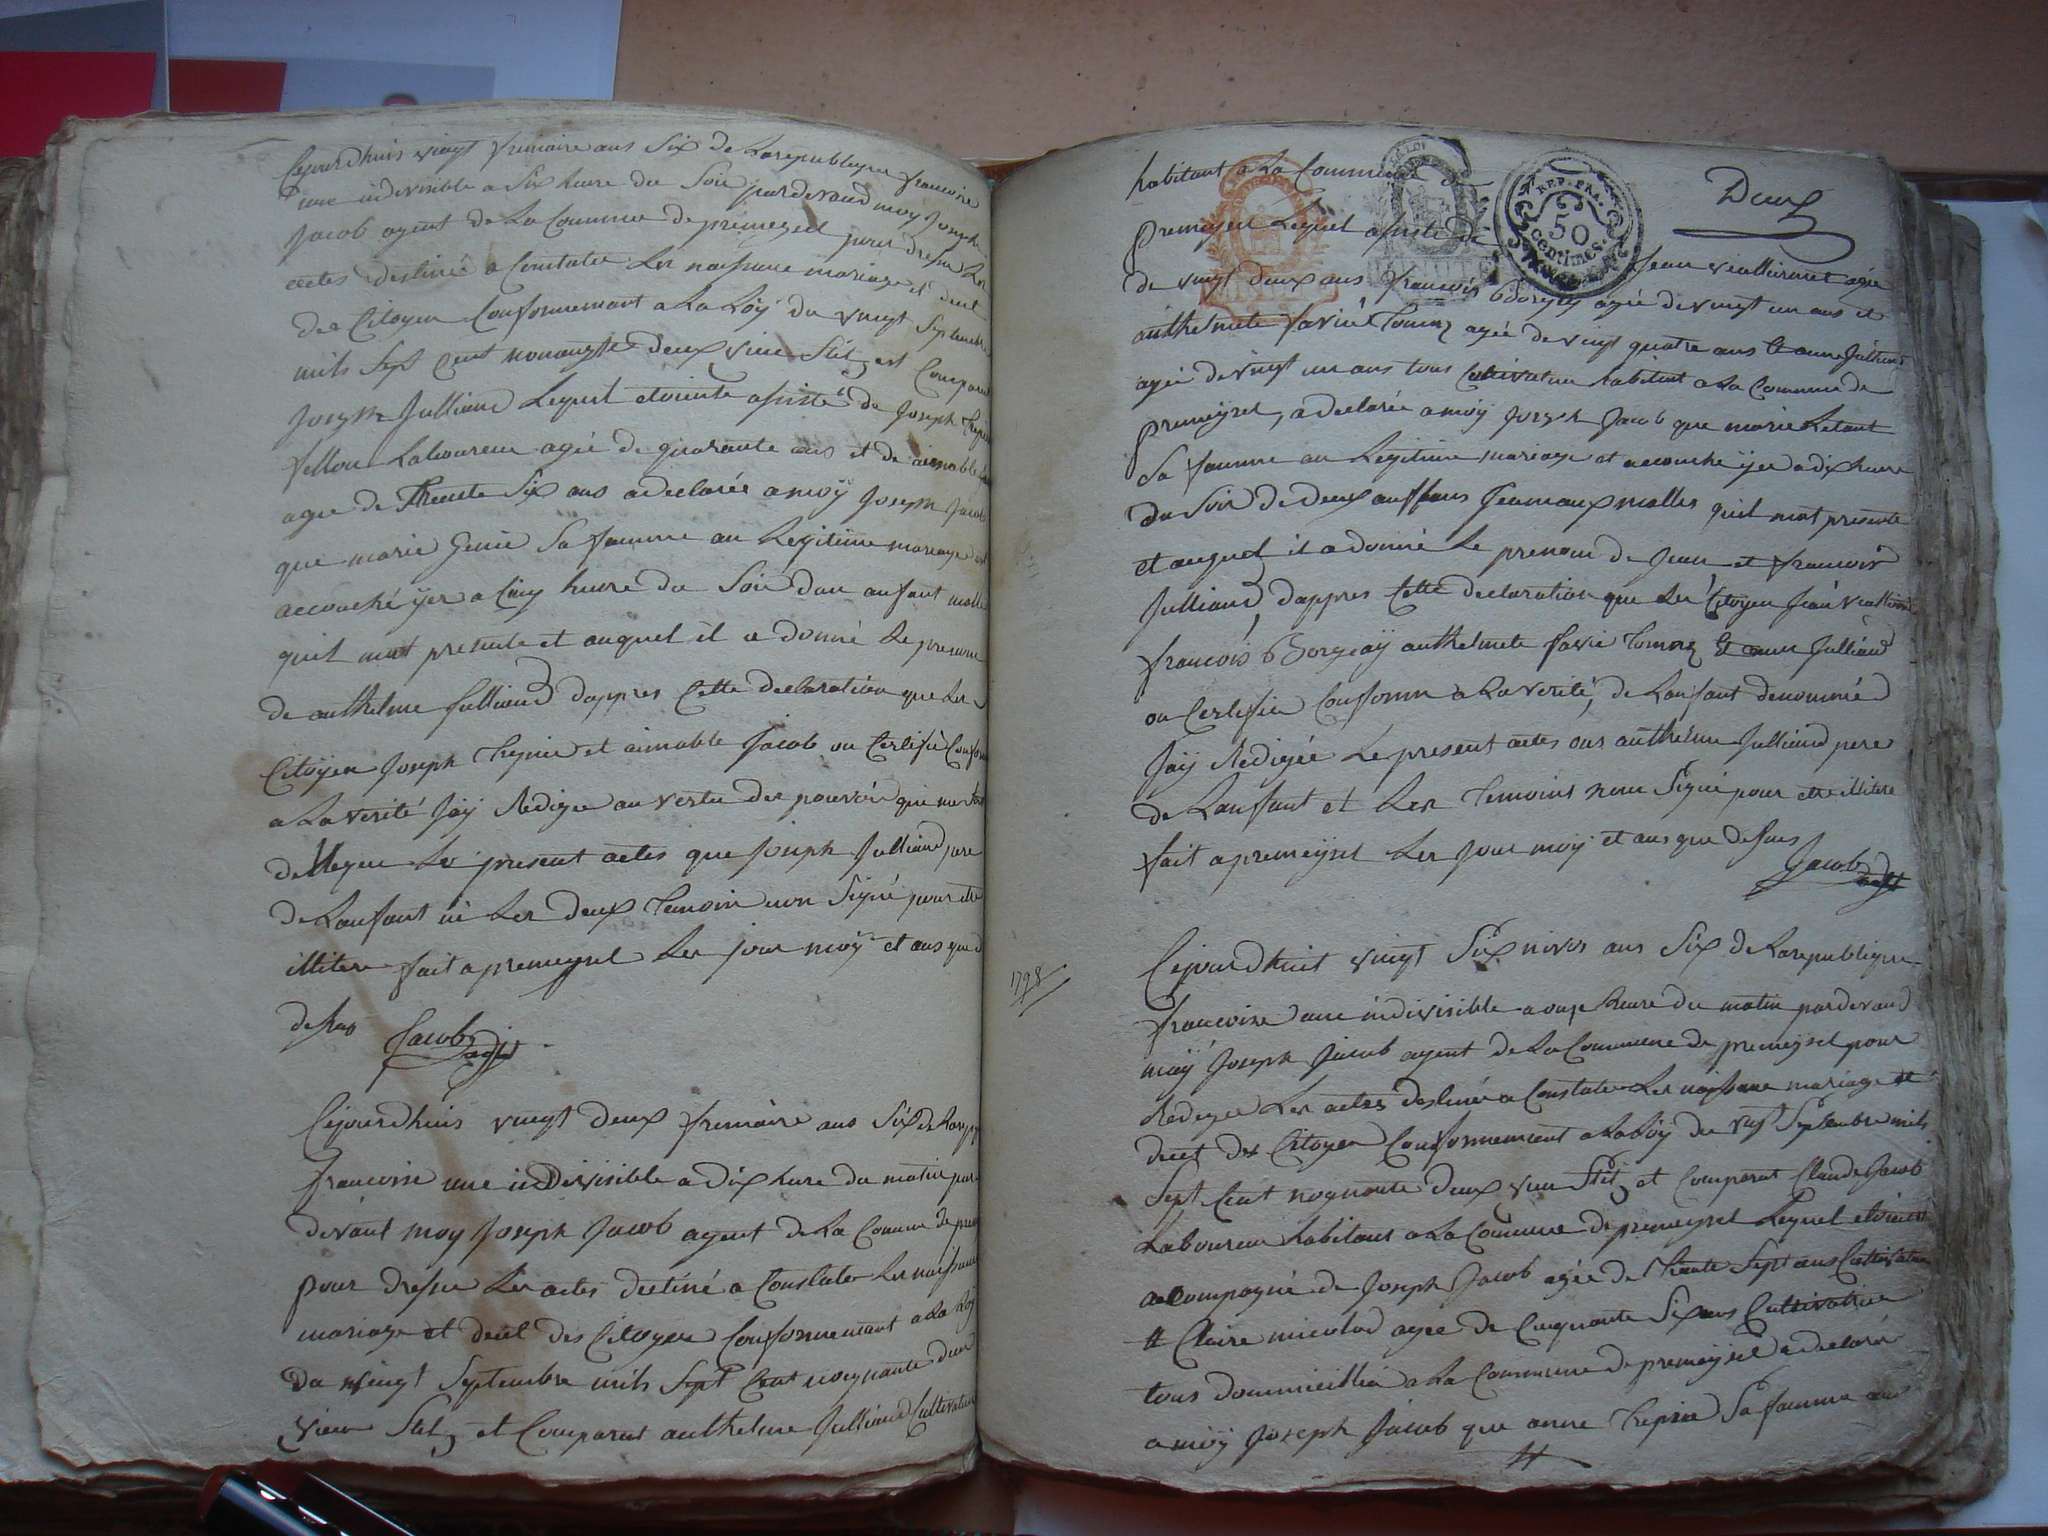 Cejourdhuis vingt frimaire ans Six de Larepublique francoise
une indivisible a Six heure du Soir pardevand moy Joseph
Jacob agent de La Commune de premeyzel pour dresse Les
actes destiné a Constater Les naissance mariage et decet
des Citoyen Conformemant a La Loÿ du vingt Septembre
mils Sept Cent nonangte deux vieu Stil, est Comparut
Joseph Julliand Lequel etointe assisté de Joseph
fellou Laboureur agée de quarante ans et de aimable
agée de Trente Six ans a declarée a moÿ Joseph Jacob
que marie Genin Sa famme an Legitime mariage
accouché ÿer a Cinq heure du Soir dun anfant malle
quil mat presente et auquel il a donné Le prenom
de anthelme Julliand dappres Cette declaration que Les
Citoyen Joseph Trepier et aimable Jacob on Certifié Conforme
a La verité Jäÿ Redigée au vertu des pouvoir qui me Son
delleguer Les present actes que Joseph Julliand pere
de Lanfant ni Les deux Temoin non Signé pour etre
illitere fait a premeyzel Les jour moÿ et ans que
desus Jacob agt
Cejourdhuis vingt deux frimaire ans Six de Larep
francoise une indivisible a dix heure du matin par
devant moy Joseph Jacob agent de La Commune de prem
pour dresse Les actes destiné a Constater Les naissance
mariage et decet des Citoyen Conformemant a La Loÿ
du vingt Septembre mils Sept Cent nognante deux
vieu Stil, et Comparut anthelme Julliand Cultivateur
habitant a La Commune de
premeyzel Lequel assisté de Jean vialliermet agée
Deux
REP. FRA.
50
centimes.
de vingt deux ans francois Borgey agée de vingt un ans et
anthelmete favié Tournez agée de vingt quatre ans et anne Julliand
agée de vingt un ans tous Cultivateur habitant a La Commune de
premeyzel, a declarée a moÿ Joseph Jacob que marie Letant
Sa famme au Legitime mariage et accouché ÿer a dix heure
du Soir de deux anffans Jeameaux malles quil mat presente
et auquel il a donné Le prenom de Jean et francois
Julliand, dappres Cette declaration que Les Citoyen Jean viallierme
francois Borgeaÿ anthelmete favié Tournez et anne Julliand
on Certifiée Conforme a La verité, de Lanfant denommé
Jäÿ Redigée Le present actes ous anthelme Julliand pere
de Lanfant et Les Temoins nom Signé pour etre illitere
fait a premeyzel Les Jour moy et ans que desus
Jacob agt
1798
Cejourdhuit vingt Six nivos ans Six de Larepublique
francoise une indivisible a onze heure du matin pardevand
moÿ Joseph Jacob agent de La Commune de premeyzel pour
Redegée Les actes destinée a Constater Les naissance mariage et
decet des Citoyen Conformement a La Loÿ du vingt Septembre mils
Sept Cent nognante deux vieu Stil, et Comparut Claude Jacob
Laboureur habitant a La Commune de premeyzel Lequel etoient
accompagné de Joseph Jacob agée de Trante Sept ans Cultivateur
et Claire micolod agée de Cinquante Six ans Cultivatrice
tous dommicillié a La Commune de premeyzel a declarée
a moÿ Joseph Jacob que anne Trepier Sa famme au